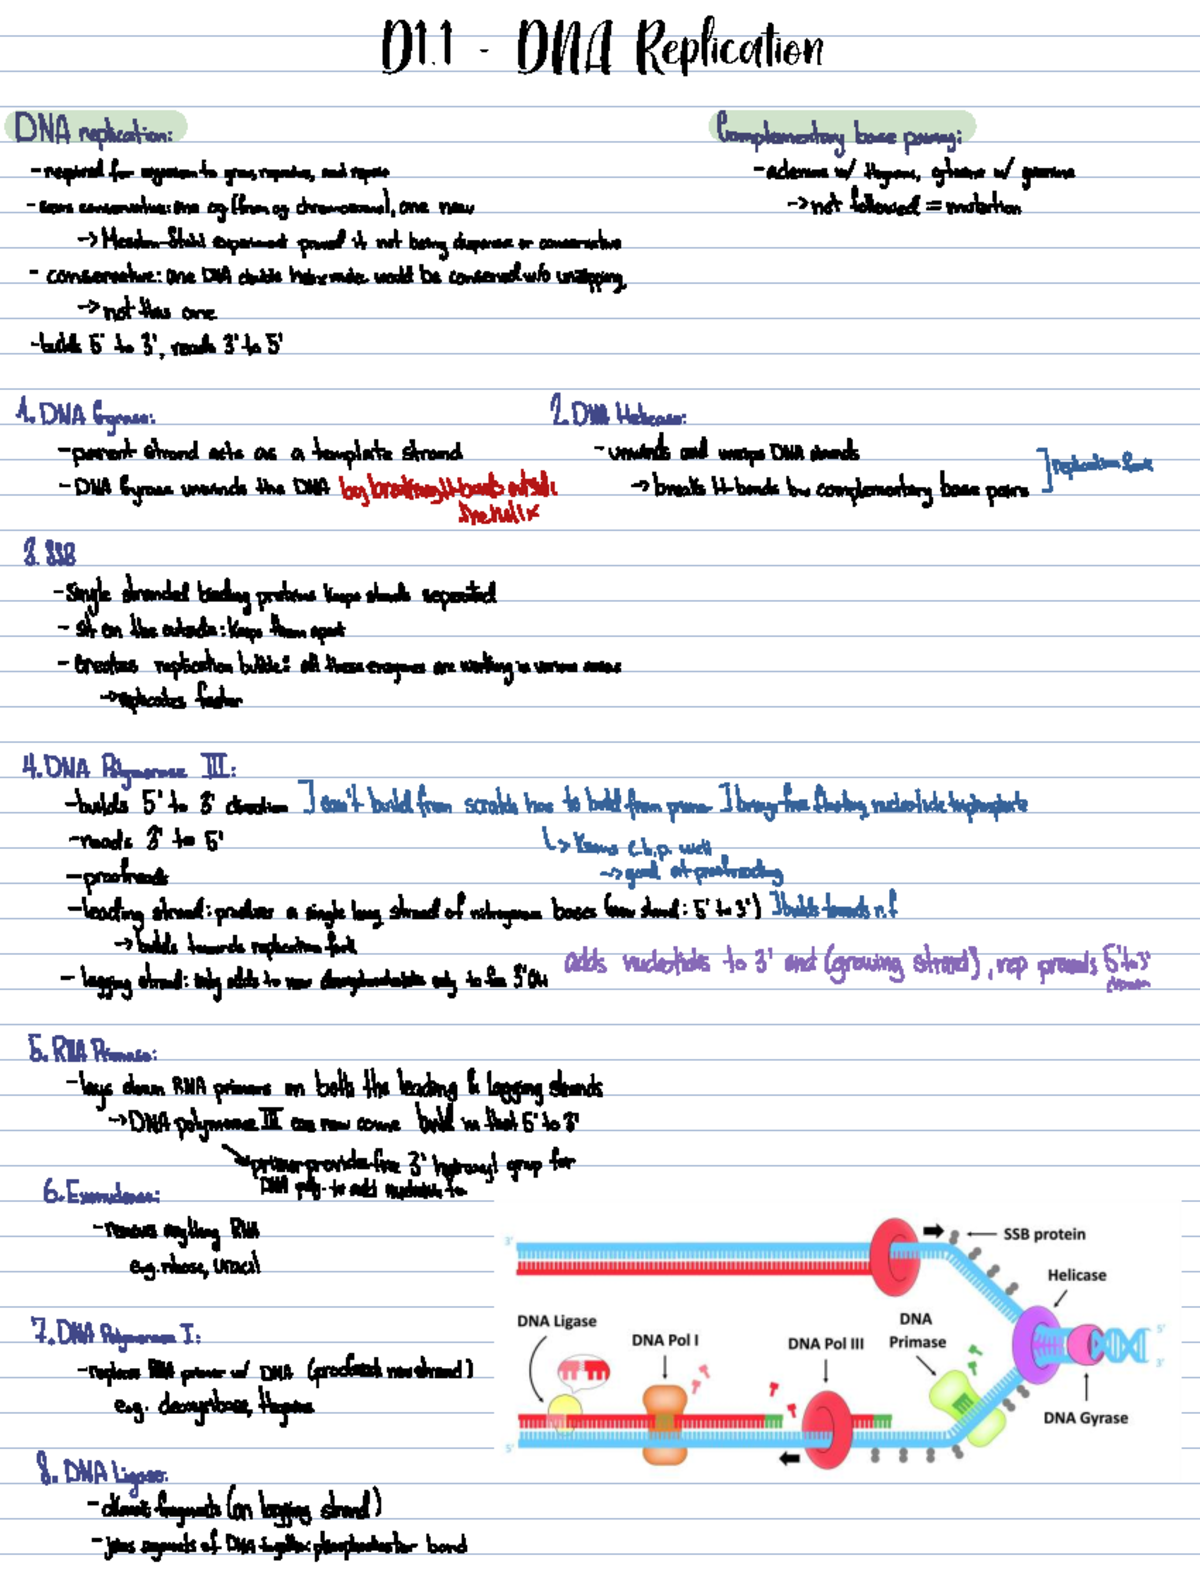 D1.1 - DNA Replication
DNA replication:
- required for organism to grow, reproduce, and repair
- semi conservative: one og (from og chromosome), one new
-> Meselson-Stahl experiment proved it not being dispersive or conservative
- conservative: one DNA double helix would be conserved w/o unzipping
-> not this one
- builds 5' to 3', reads 3' to 5'
Complementary base pairing:
- adenine w/ thymine, cytosine w/ guanine
-> not followed = mutation
1. DNA Gyrase:
- parent strand acts as a template strand
- DNA Gyrase unwinds the DNA by breaking H-bonds outside
the helix
2. DNA Helicase:
- unwinds and DNA strands
-> breaks H-bonds bw complementary base pairs
] replication fork
3. SSB
- Single stranded binding proteins keeps strands separated
- sit on the outside: keeps them apart
- Creates replication bubble: all these enzymes are working in various areas
-> replicates faster
4. DNA Polymerase III:
- builds 5' to 3' direction ] can't build from scratch has to build from primer ] brings free floating nucleotide triphosphate
- reads 3' to 5'
↳ knows c.b.p. well
-> good at proofreading
- proofreads
- leading strand: produces a single long strand of nitrogenous bases (new strand: 5' to 3') ] builds towards r.f
-> builds towards replication fork
- lagging strand: only adds to new only to free 3'OH
adds nucleotides to 3' end (growing strand), rep proceeds 5' to 3'
5. RNA Primase:
- lays down RNA primers on both the leading & lagging strands
-> DNA polymerase III can now come build in that 5' to 3'
primer provides free 3' hydroxyl group for
DNA poly. to add nucleotide to
6. Exonuclease:
- removes anything RNA
e.g. ribose, uracil
7. DNA Polymerase I:
- replaces RNA primer w/ DNA (proofreads new strand)
e.g. deoxyribose, thymine
8. DNA Ligase:
- okazaki fragments (on lagging strand)
- joins segments of DNA together: phosphodiester bond
3'
SSB protein
Helicase
DNA Ligase
DNA Pol I
DNA Pol III
DNA
Primase
5'
3'
DNA Gyrase
5'